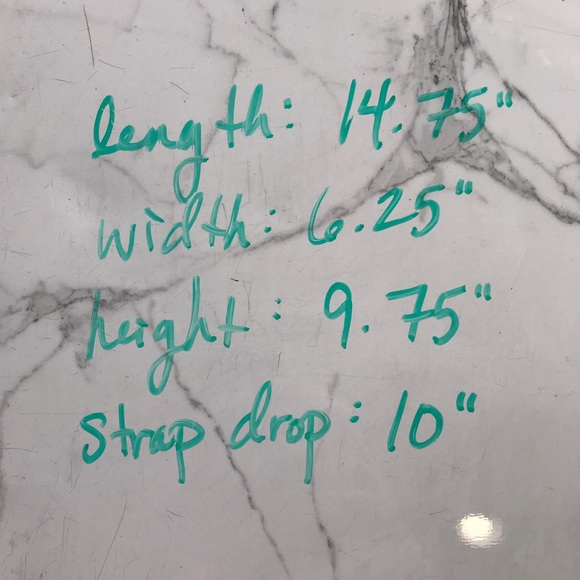 length: 14.75"
width: 6.25"
height: 9.75"
strap drop: 10"